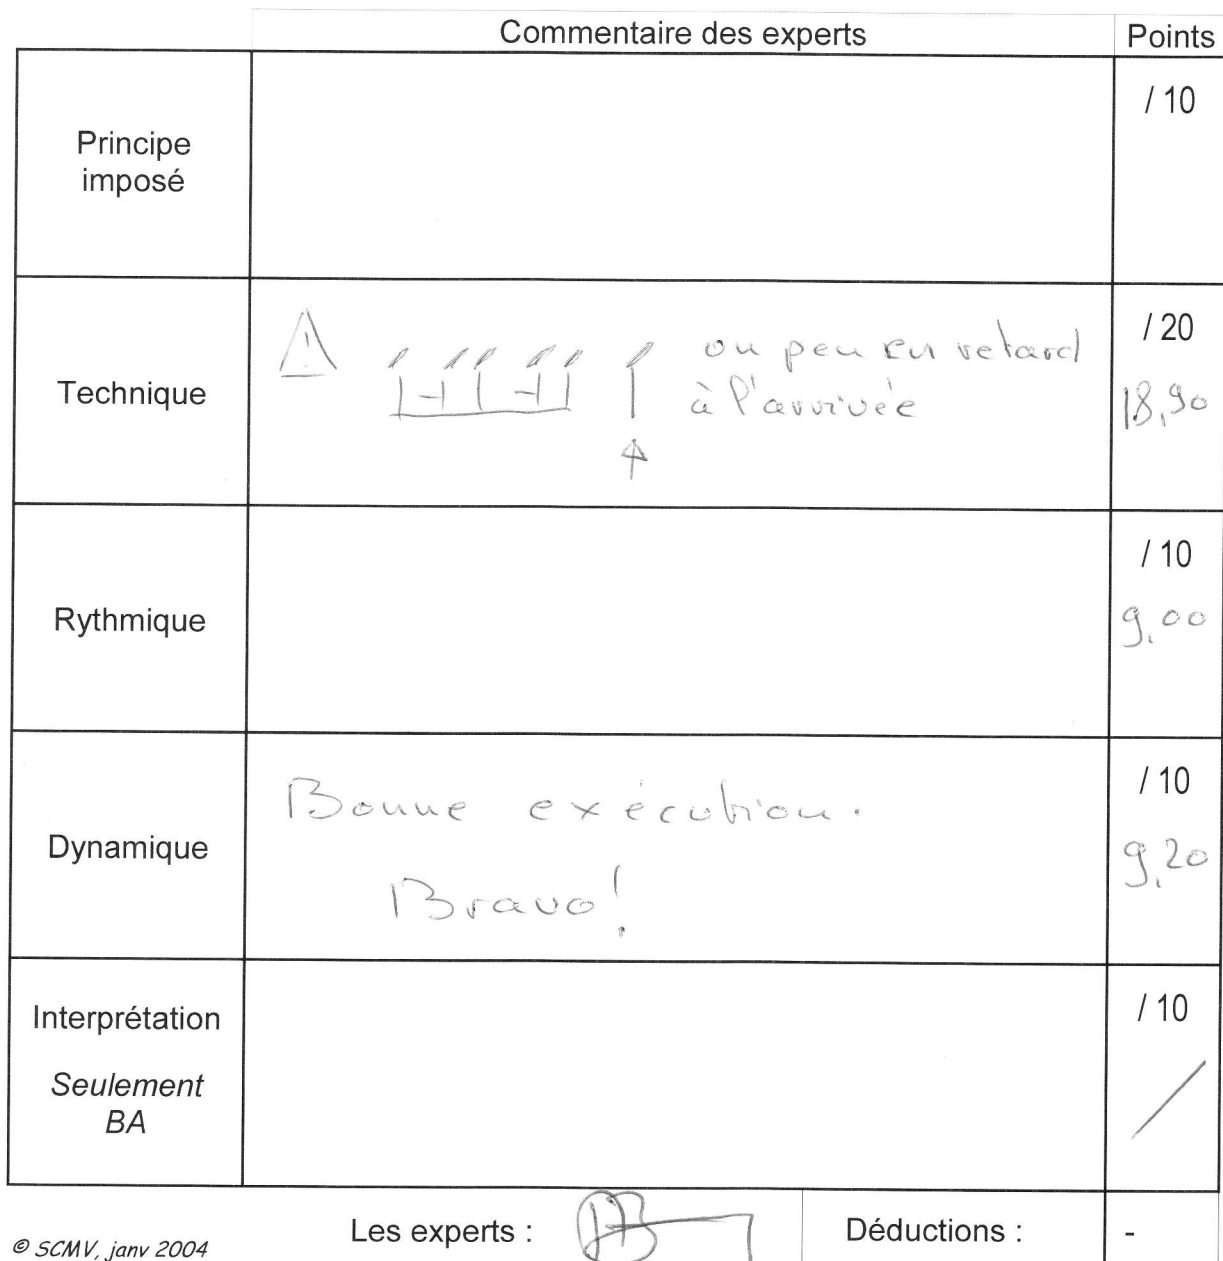 Commentaire des experts
Points
Principe
imposé
/ 10
Technique
ou peu en retard
à l'arrivée
/ 20
18,90
Rythmique
/ 10
9,00
Dynamique
Bonne exécution.
Bravo!
/ 10
9,20
Interprétation
Seulement
BA
/ 10
/
Les experts :
Déductions :
-
© SCMV, janv 2004